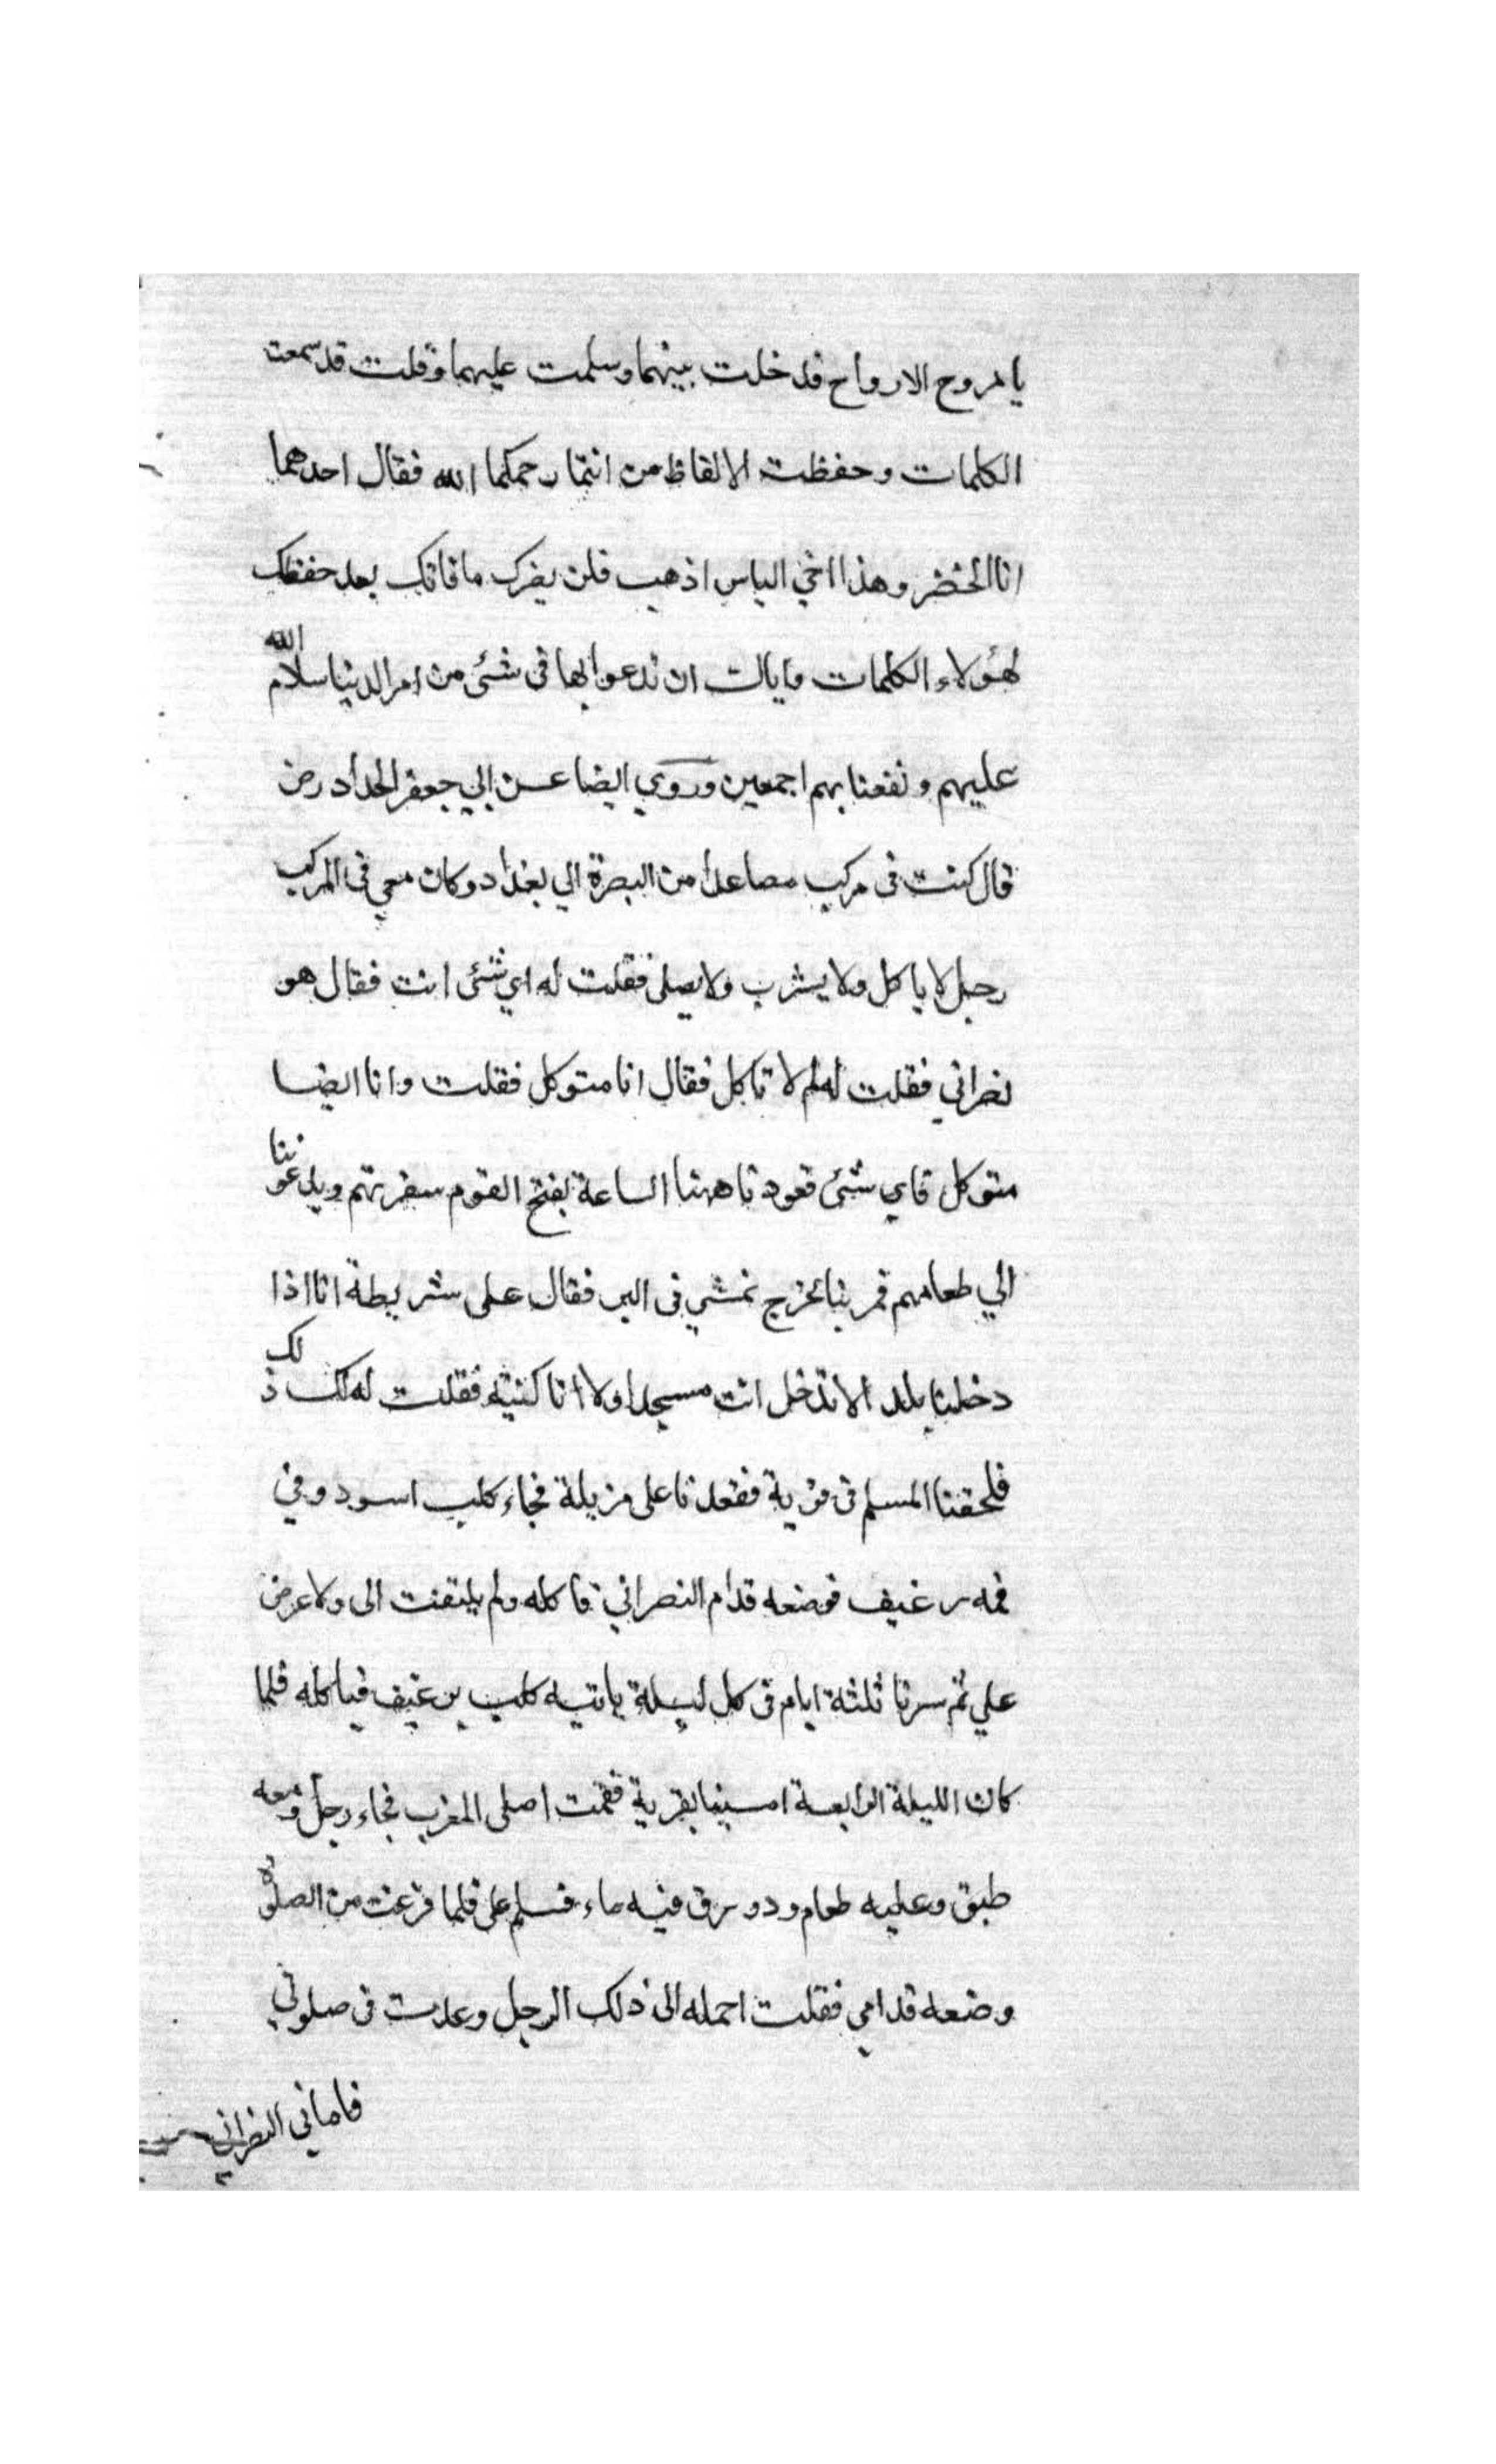 يا مروح الارواح فدخلت بينهما وسلمت عليهما وقلت قد سمعت
الكلمات وحفظت الالفاظ من انتما رحمكما الله فقال احدهما
انا الخضر وهذا اخي الياس اذهب فلن يضرك ما فاتك بعد حفظك
لهؤلاء الكلمات واياك ان تدعوا بها فى شئ من امر الدنيا سلام الله
عليهم ونفعنا بهم اجمعين وروي ايضا عن ابي جعفر الحداد رض
قال كنت فى مركب مصاعدا من البصرة الي بغداد وكان معي فى المركب
رجل لا ياكل ولا يشرب ولا يصلى فقلت له اي شئ انت فقال هو
نصراني فقلت له لم لا تاكل فقال انا متوكل فقلت وانا ايضا
متوكل فاي شئ قعودنا ههنا الساعة يفتح القوم سفرتهم ويدعوننا
الي طعامهم قم بنا نخرج نمشي فى البر فقال على شريطة انا اذا
دخلنا بلدا لا تدخل انت مسجدا ولا انا كنيته فقلت له لك ذلك
فلحقنا المسلم فى قرية فقعدنا على مزبلة فجاء كلب اسود وفي
فمه رغيف فوضعه قدام النصراني فاكله ولم يلتفت الى ولا عرض
علي ثم سرنا ثلثة ايام فى كل ليلة ياتيه كلب برغيف فياكله فلما
كان الليلة الرابعة امسينا بقرية فقمت اصلى المغرب فجاء رجل ومعه
طبق وعليه طعام ودورق فيه ماء فسلم على فلما فرغت من الصلوة
وضعه قدامي فقلت احمله الى ذلك الرجل وعدت فى صلوتي
النصراني